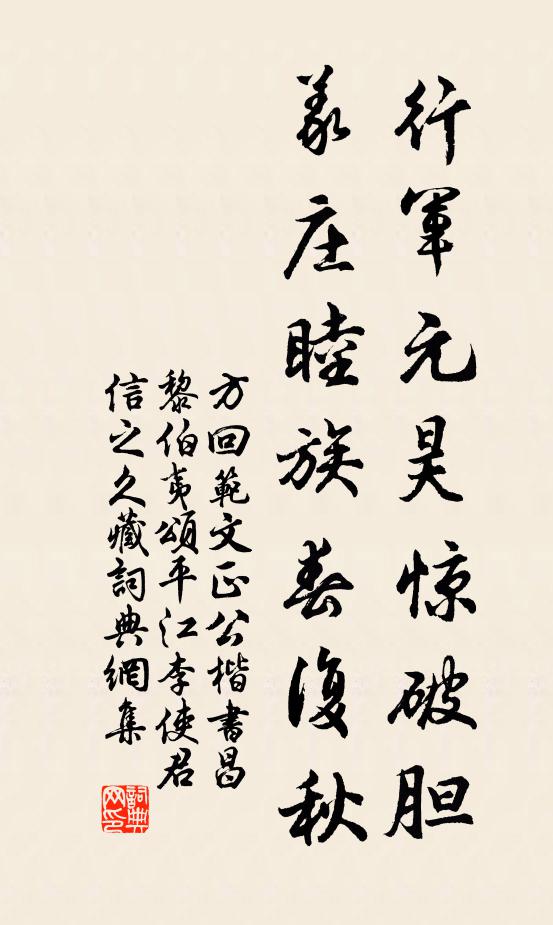 行军元昊惊破胆
义庄睦族春复秋
方回範文正公楷書昌
黎伯夷頌平江李使君
信之久藏詞典網集
詞典
网印